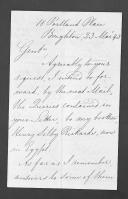 10 Portland Place
Brighton, 23 Mar
Gentn
Agreeably to your
request, I intend to for-
ward, by the next Mail,
the Queries contained in
your letter, to my brother
Henry Selby Rickards, now
in Egypt.
As far as I remember
answers to some of them